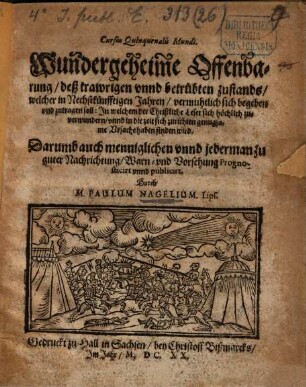 4° J. publ. E. 313 (26
BIBLIOTHECA
REGIA
MONACENSIS
Cursus Quinquenalis Mundi.
Wundergeheime Offenba-
rung / deß trawrigen vnnd betrübten zustands /
welcher in Nechstkünfftigen Jahren / vermuthlich sich begeben
vnd zutragen sol: In welchen der Christliche Leser sich höchlich zu-
verwundern / vnnd in die zeit sich zurichten genung sa-
me Vrsach haben finden wird.
Darumb auch menniglichen vnnd jederman zu
guter Nachrichtung / Warn- vnd Vorsehung Progno-
sticiret vnnd publiciret.
Durch
M. PAULUM NAGELIUM. Lips.
Gedruckt zu Hall in Sachsen / bey Christoff Bißmarcks /
Im Jahr / M. DC. XX.